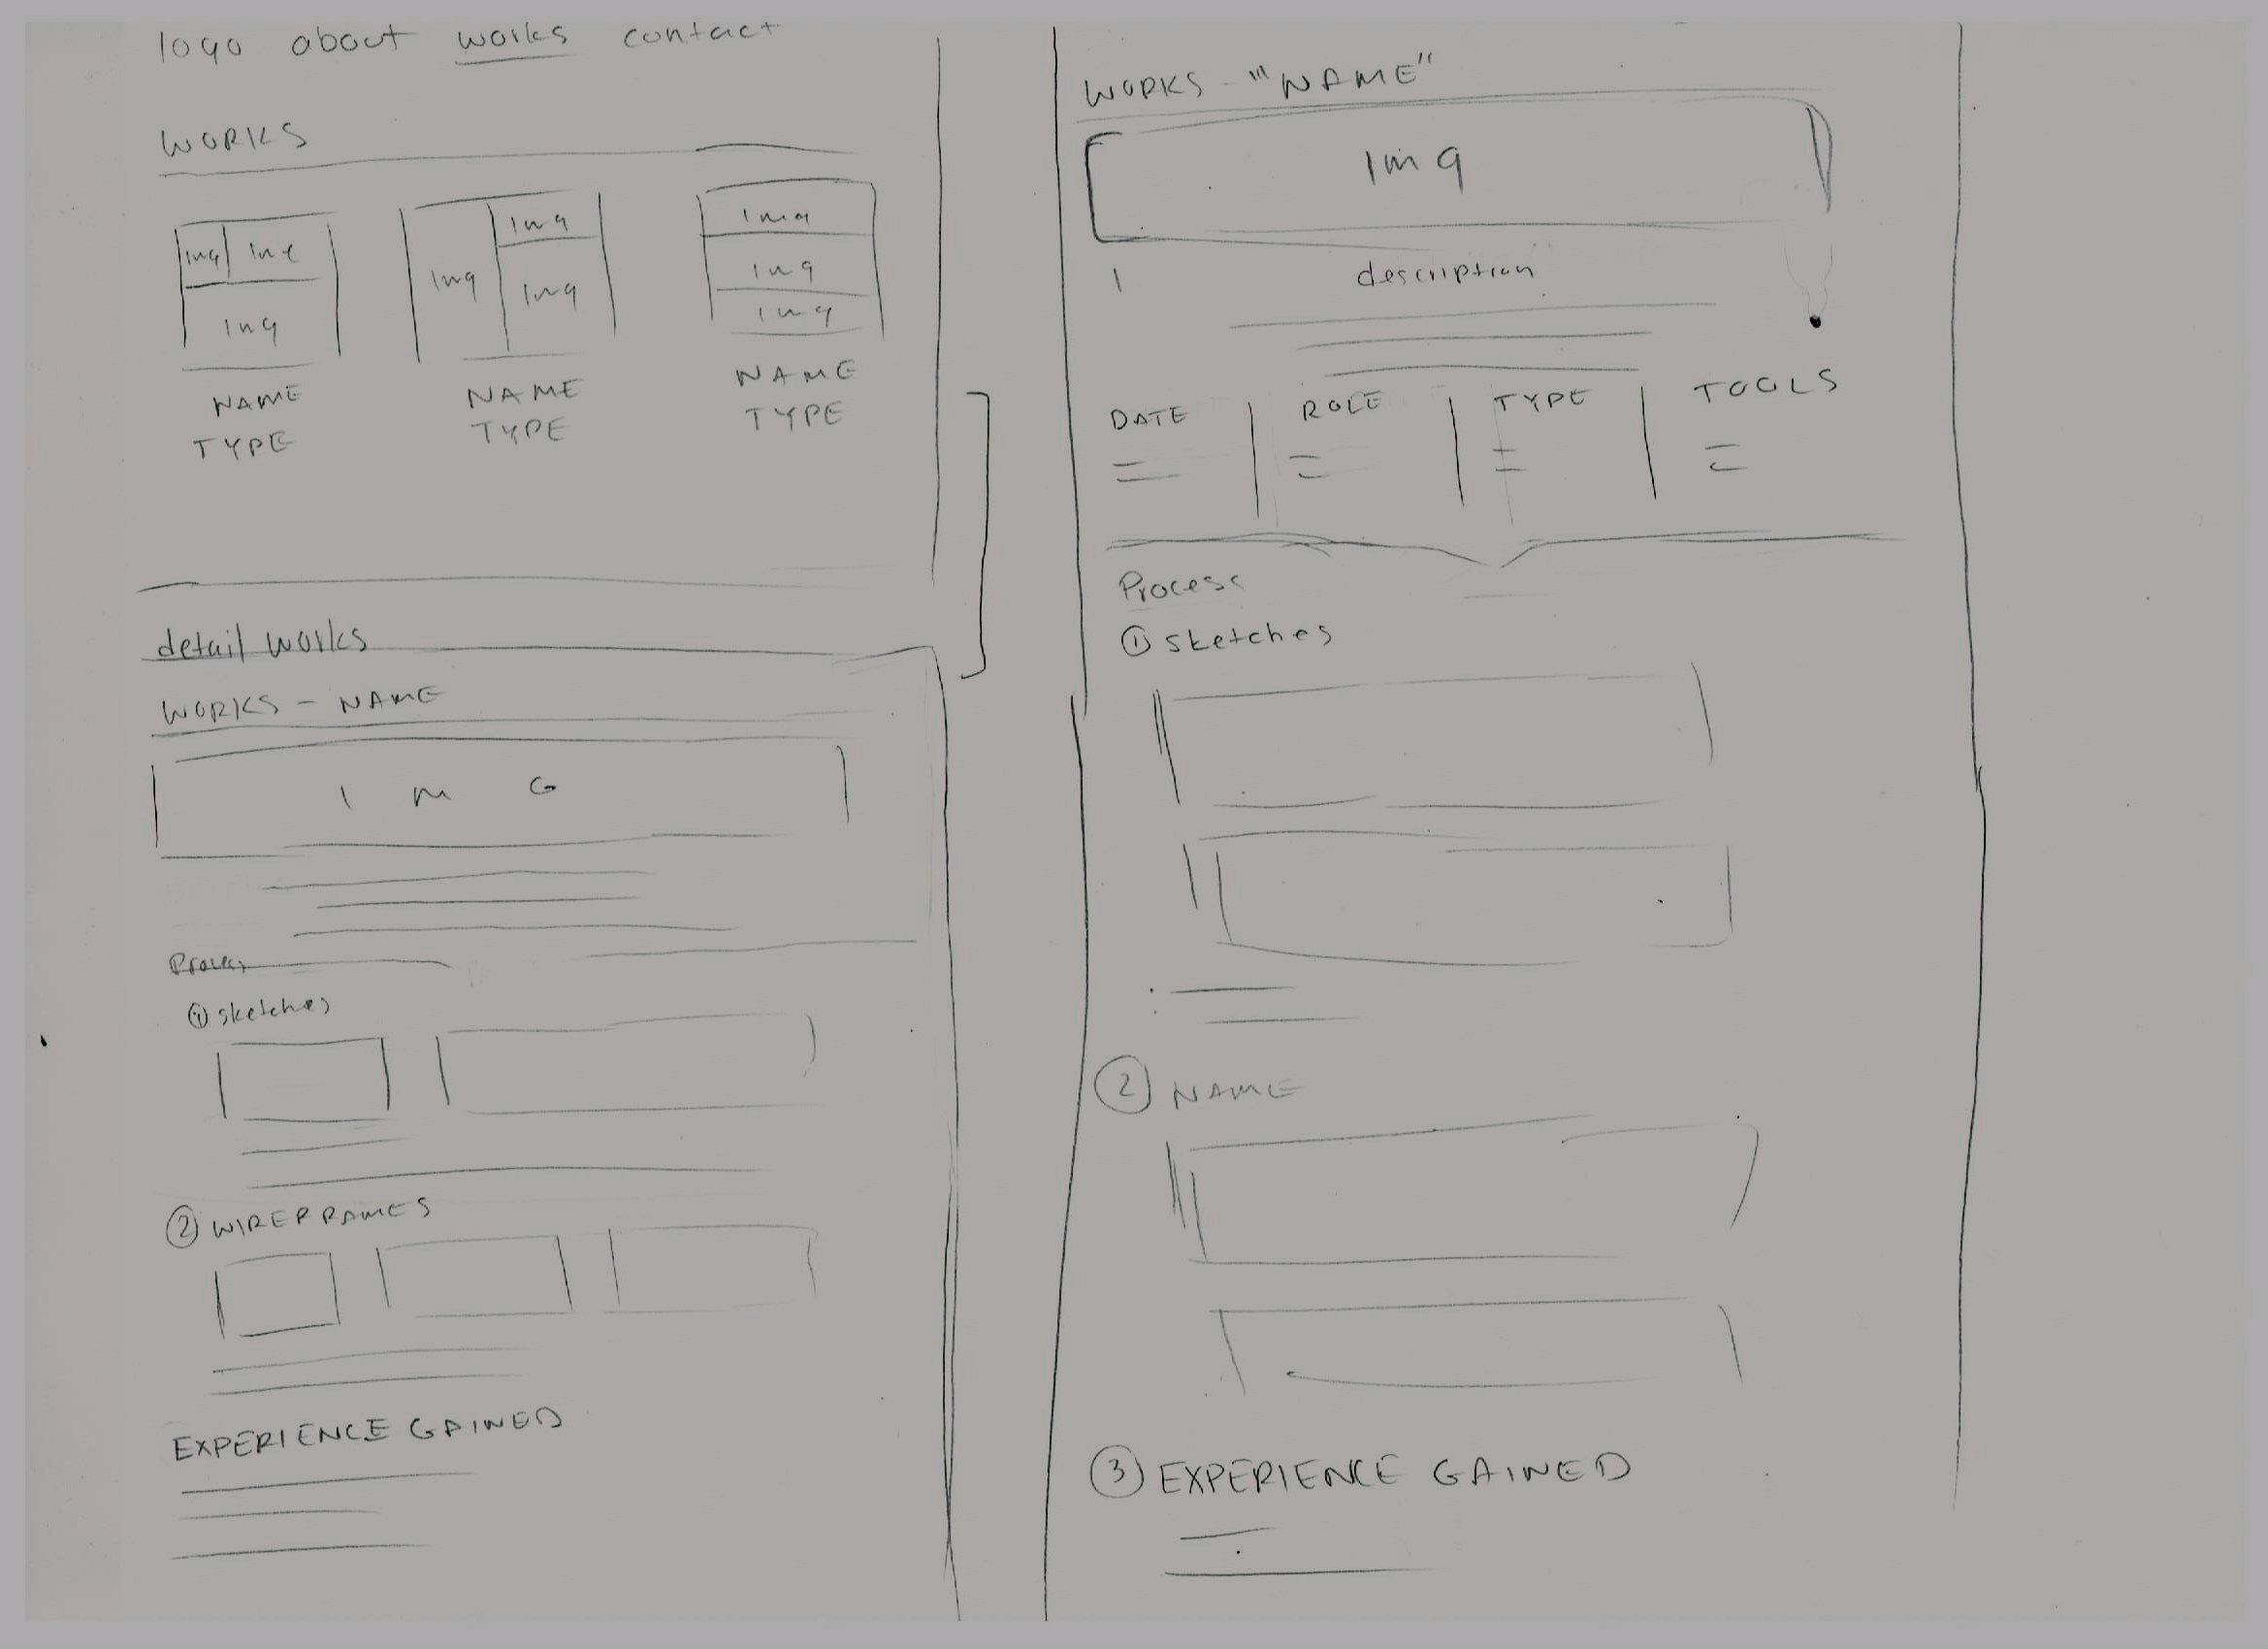 logo about works contact
WORKS
Img Img
Img
Img
Img
Img
Img
Img
Img
NAME
TYPE
NAME
TYPE
NAME
TYPE
detail works
WORKS - NAME
I M G
Process
① sketches
② WIREFRAMES
EXPERIENCE GAINED
WORKS - "NAME"
Img
description
DATE ROLE TYPE TOOLS
Process
① sketches
② NAME
③ EXPERIENCE GAINED